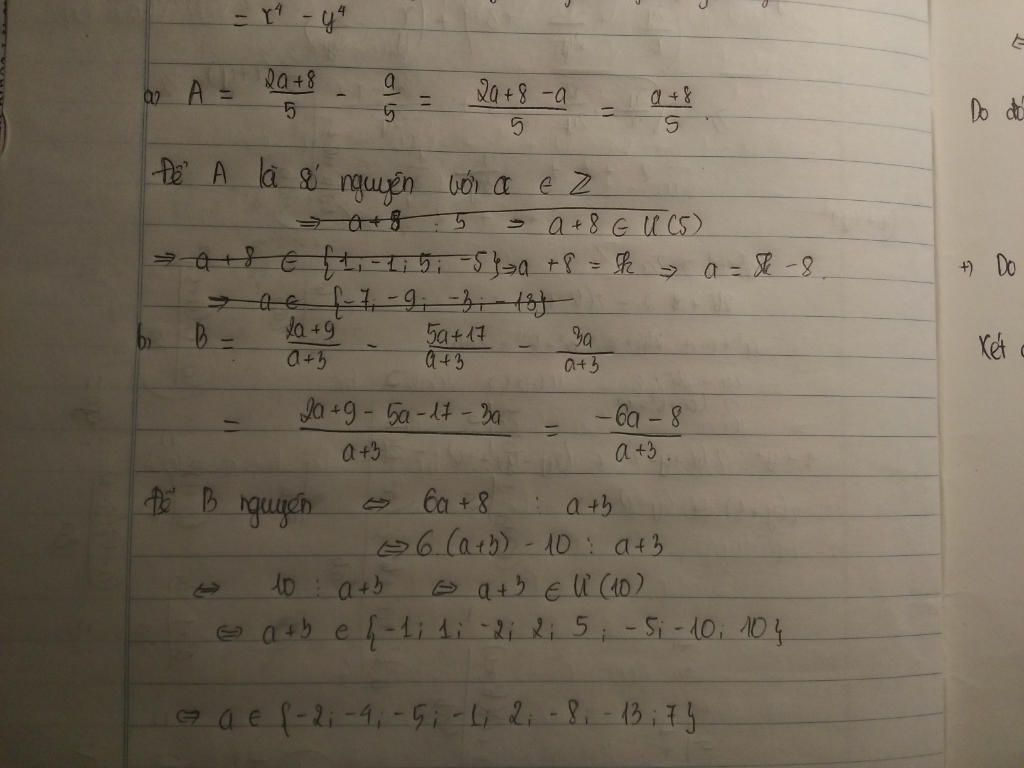 = x⁴ - y⁴
a) A = (2a+8)/5 - a/5 = (2a+8-a)/5 = (a+8)/5.
Do đó
Để A là số nguyên với a ∈ Z
⇒ a+8 ⋮ 5 ⇒ a+8 ∈ Ư(5)
⇒ a+8 ∈ {1; -1; 5; -5} ⇒ a+8 = 5k ⇒ a = 5k - 8.
+) Do
⇒ a ∈ {-7; -9; -3; -13}
b, B = (2a+9)/(a+3) - (5a+17)/(a+3) - 3a/(a+3)
Kết
= (2a+9-5a-17-3a)/(a+3) = (-6a-8)/(a+3).
Để B nguyên ⇔ 6a+8 ⋮ a+3
⇔ 6(a+3) - 10 ⋮ a+3
⇔ 10 ⋮ a+3 ⇔ a+3 ∈ Ư(10)
⇔ a+3 ∈ {-1; 1; -2; 2; 5; -5; -10; 10}
⇔ a ∈ {-2; -4; -5; -1; 2; -8; -13; 7}